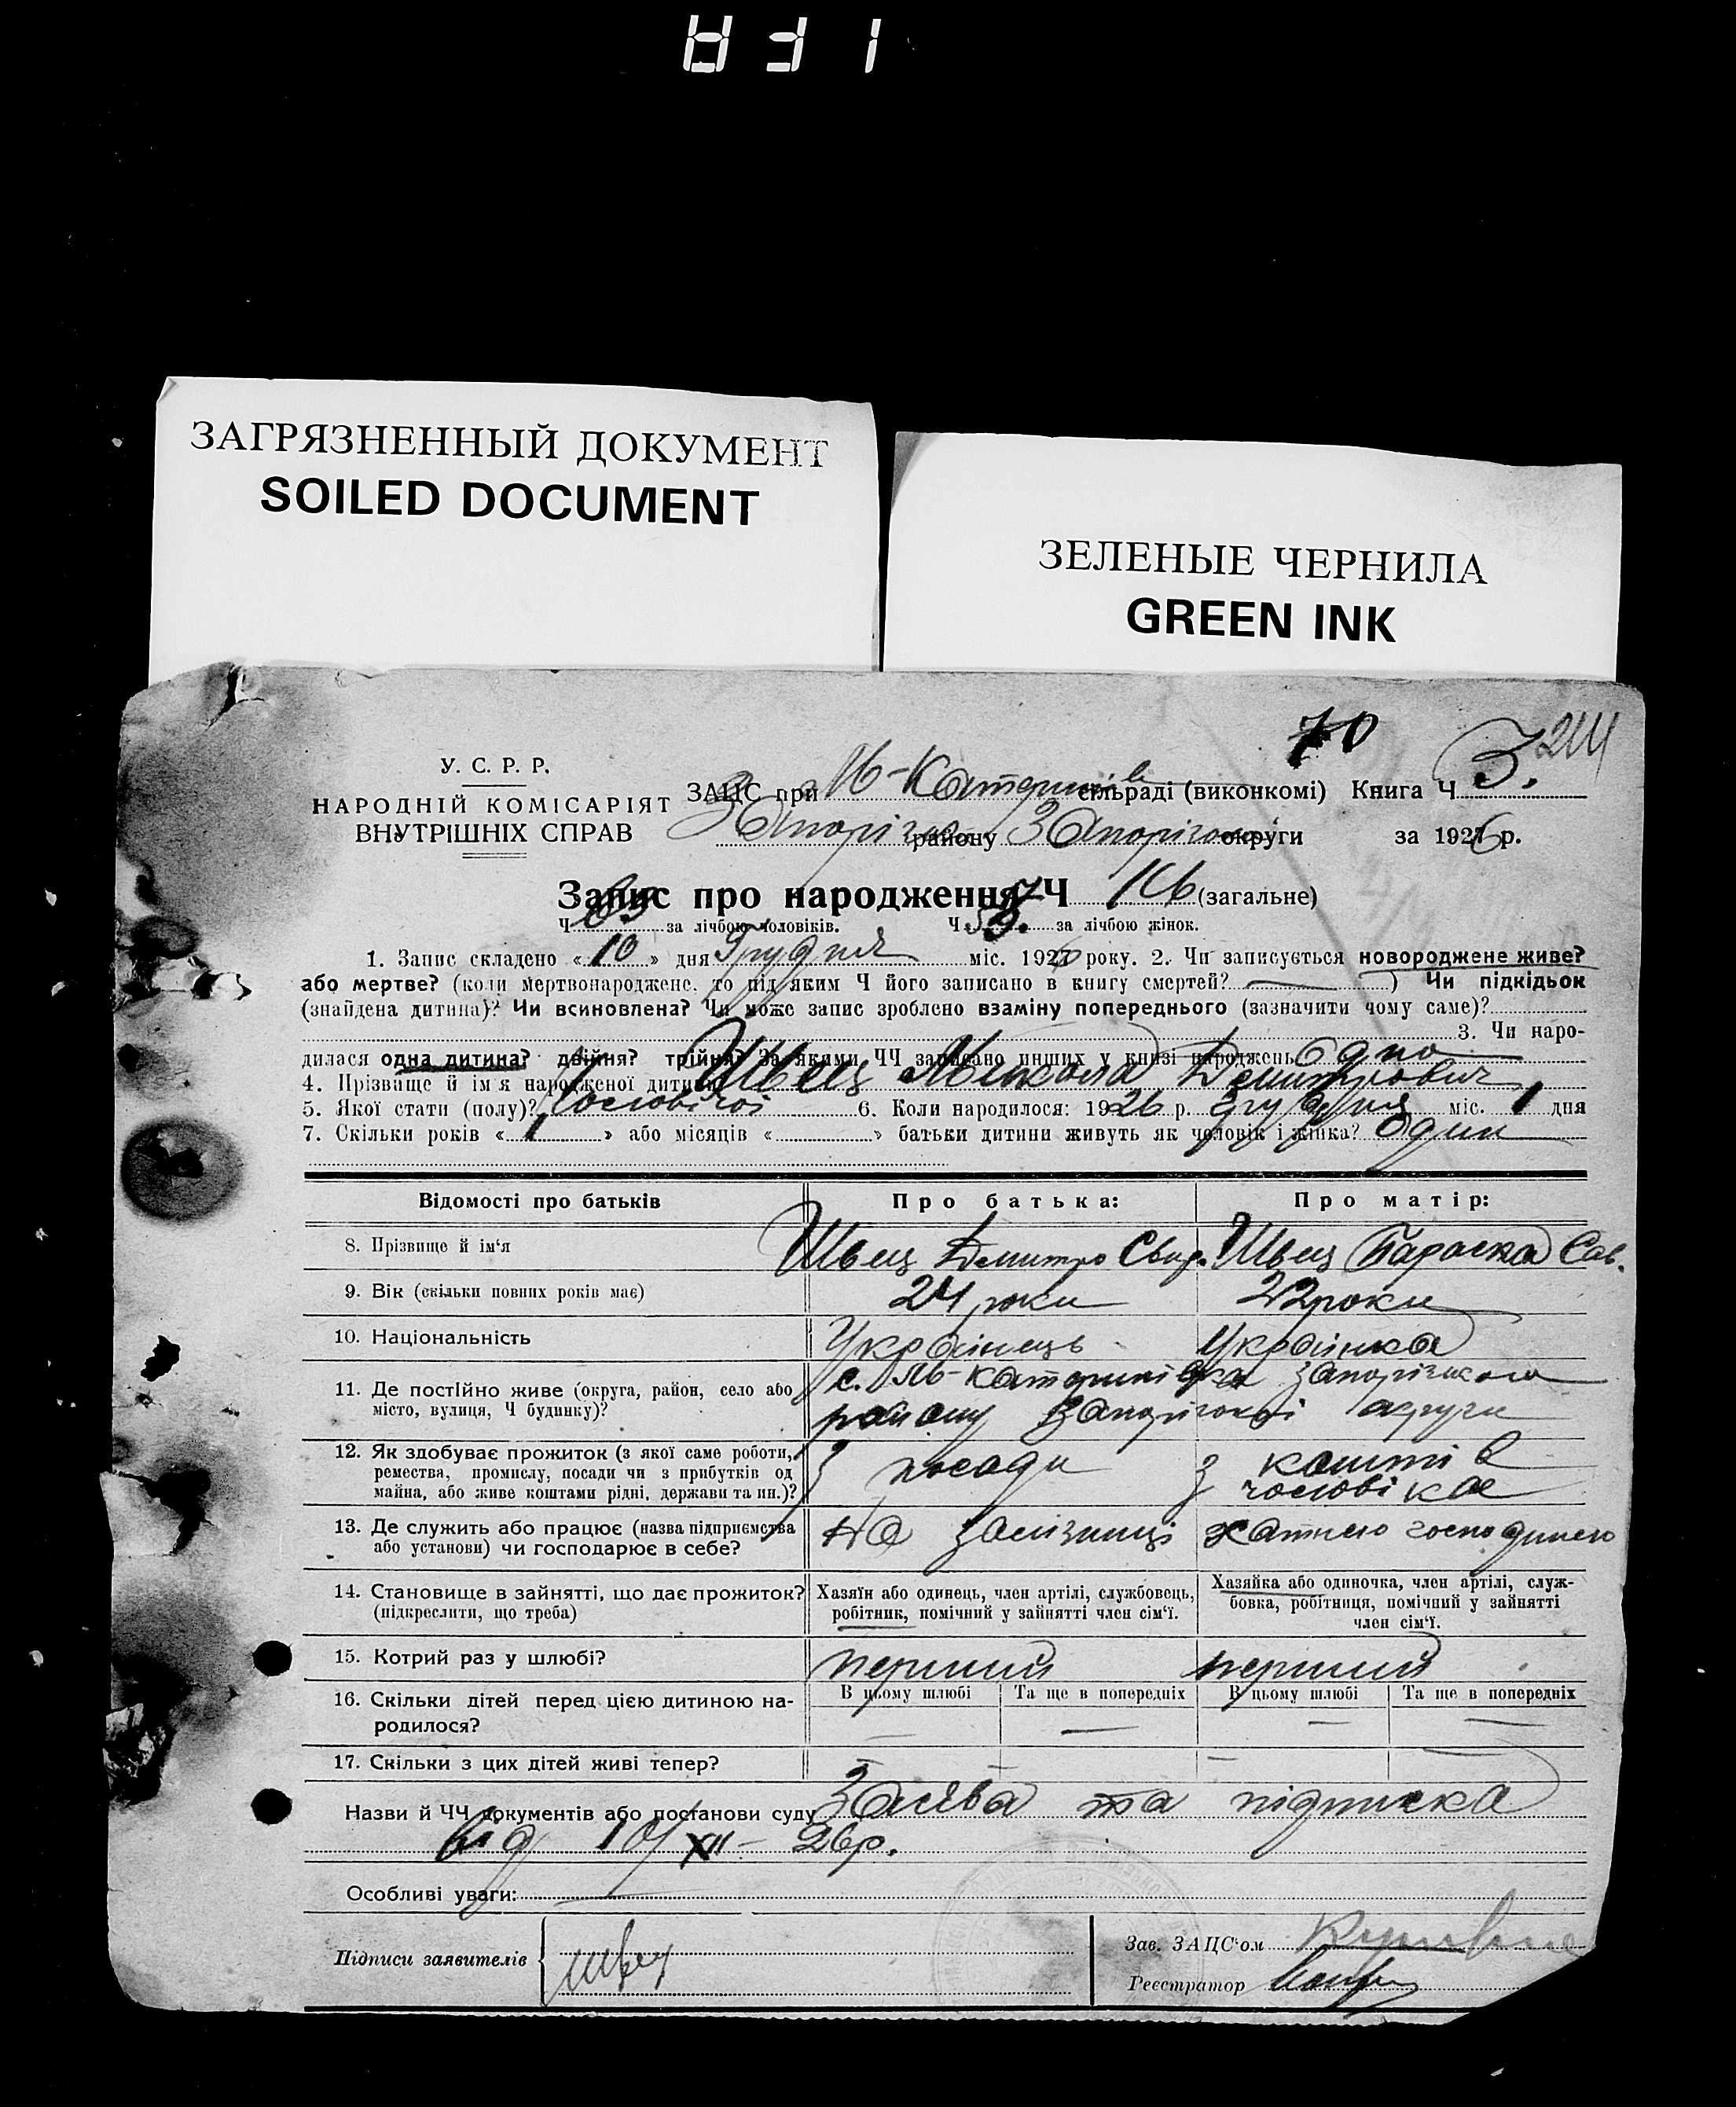 ЗАГРЯЗНЕННЫЙ ДОКУМЕНТ
SOILED DOCUMENT
ЗЕЛЕНЫЕ ЧЕРНИЛА
GREEN INK
70
244
У. С. Р. Р.
НАРОДНІЙ КОМІСАРІЯТ
ВНУТРІШНІХ СПРАВ
ЗАЦС при М-Катеринів сільраді (виконкомі) Книга Ч 3.
Запорізьк. району Запорізької округи за 1926 р.
Запис про народження Ч (загальне)
Ч за лічбою чоловіків. Ч за лічбою жінок.
1. Запис складено «10» дня Грудня міс. 1926 року. 2. Чи записується новороджене живе?
або мертве? (коли мертвонароджене, то під яким Ч його записано в книгу смертей? — ) Чи підкідьок
(знайдена дитина)? Чи всиновлена? Чи може запис зроблено взаміну попереднього (зазначити чому саме)?
3. Чи наро-
дилася одна дитина? двійня? трійня? За якими ЧЧ записано инших у книзі народжень Одно
4. Прізвище й ім'я народженої дитини Швец Микола Дмитрович
5. Якої стати (полу)? Чоловічої 6. Коли народилося: 1926 р. грудня міс. 1 дня
7. Скільки років «1» або місяців « » батьки дитини живуть як чоловік і жінка? Один
Відомості про батьків Про батька: Про матір:
8. Прізвище й ім'я Швец Дмитро Свир. Швец Параска Сав.
9. Вік (скільки повних років має) 24 роки 22 роки
10. Національність Українець Українка
11. Де постійно живе (округа, район, село або
місто, вулиця, Ч будинку)?
с. М-Катеринівка Запорізького
району Запорізької округи
12. Як здобуває прожиток (з якої саме роботи,
ремества, промислу, посади чи з прибутків од
майна, або живе коштами рідні, держави та ин.)?
З посади
З коштів
чоловіка
13. Де служить або працює (назва підприємства
або установи) чи господарює в себе?
На залізниці
хатнею господинею
14. Становище в зайнятті, що дає прожиток?
(підкреслити, що треба)
Хазяїн або одинець, член артілі, службовець,
робітник, помічний у зайнятті член сім'ї.
Хазяйка або одиночка, член артілі, служ-
бовка, робітниця, помічний у зайнятті
член сім'ї.
15. Котрий раз у шлюбі? перший перший
16. Скільки дітей перед цією дитиною на-
родилося?
В цьому шлюбі Та ще в попередніх В цьому шлюбі Та ще в попередніх
— — — —
17. Скільки з цих дітей живі тепер? — — — —
Назви й ЧЧ документів або постанови суду Заява та підписка
від 10/XII - 26р.
Особливі уваги:
Підписи заявителів Швец
Зав. ЗАЦС'ом
Реєстратор